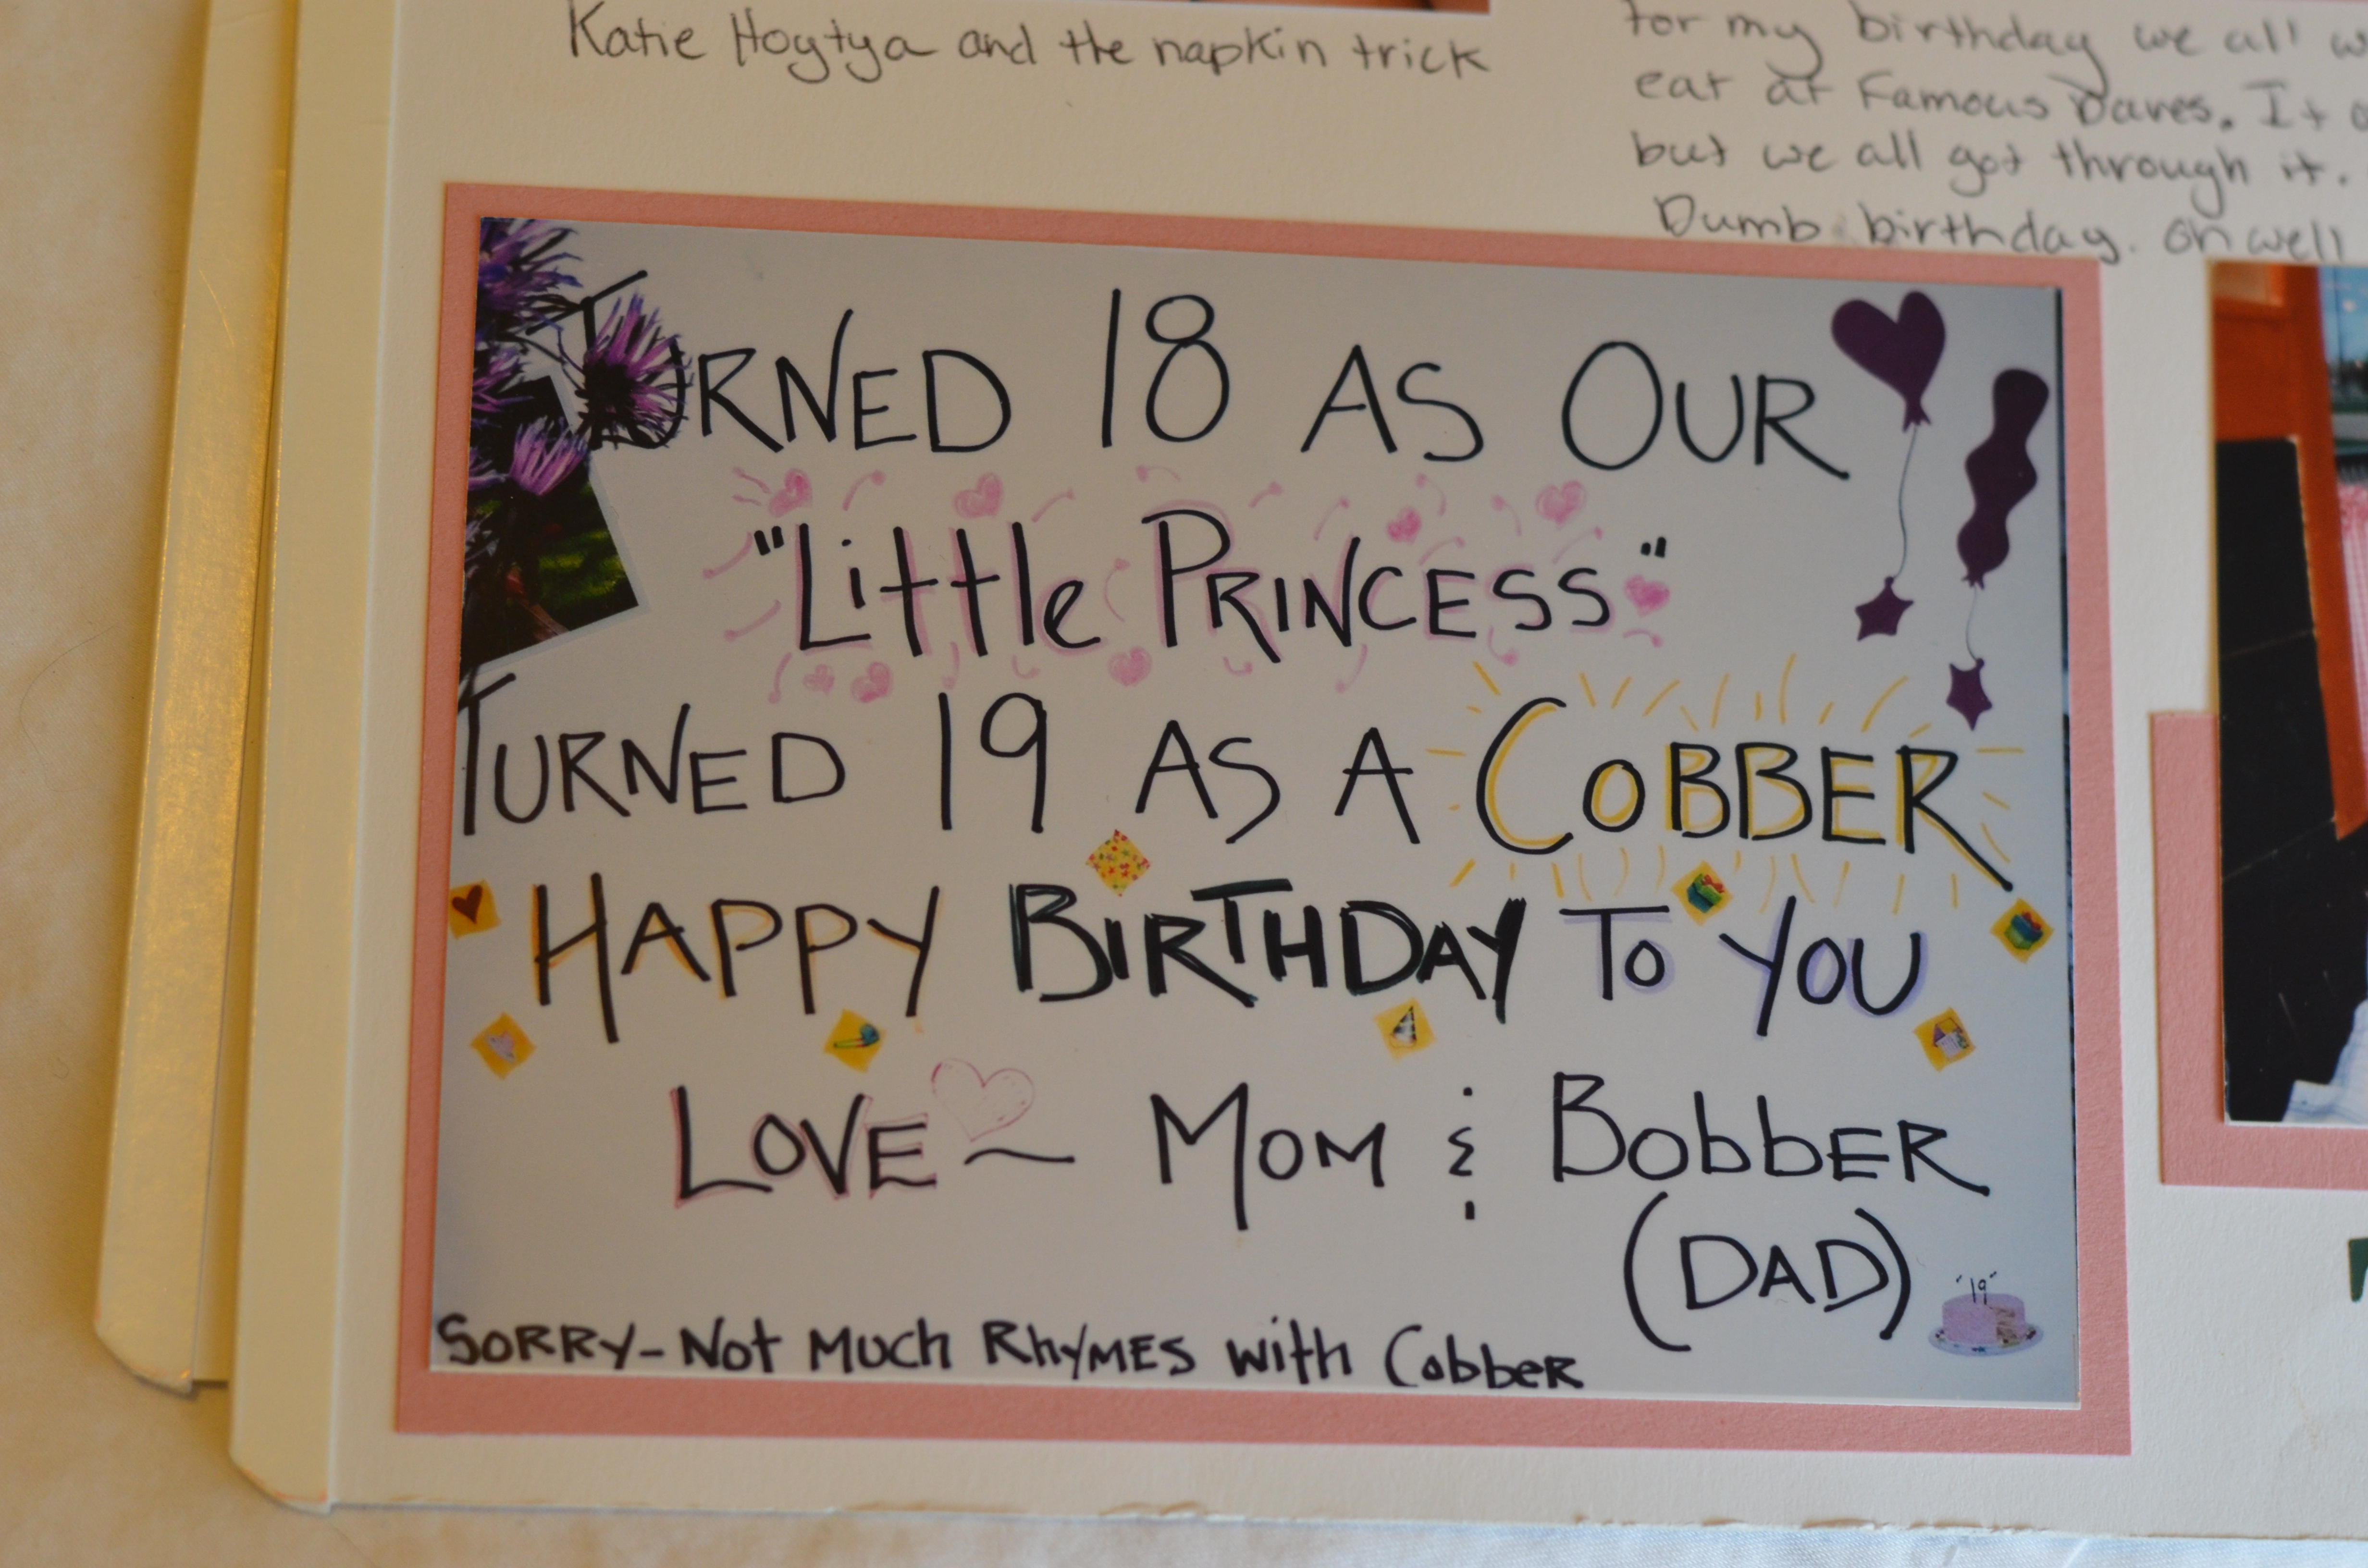 Katie Hogtya and the napkin trick
for my birthday we all
eat at Famous Daves. It
but we all got through it.
Dumb birthday. Oh well
TURNED 18 AS OUR
"Little PRINCESS"
TURNED 19 AS A COBBER
HAPPY BIRTHDAY TO YOU
LOVE ~ MOM & BobbER
(DAD)
"19"
SORRY-Not Much RhyMES with CobbeR